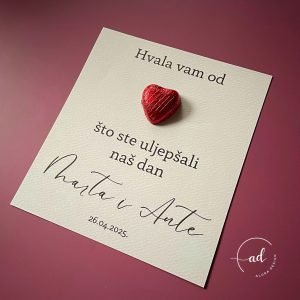 Hvala vam od
što ste uljepšali
naš dan
Marta i Ante
26.04.2025.
ad
ALURA DESIGN